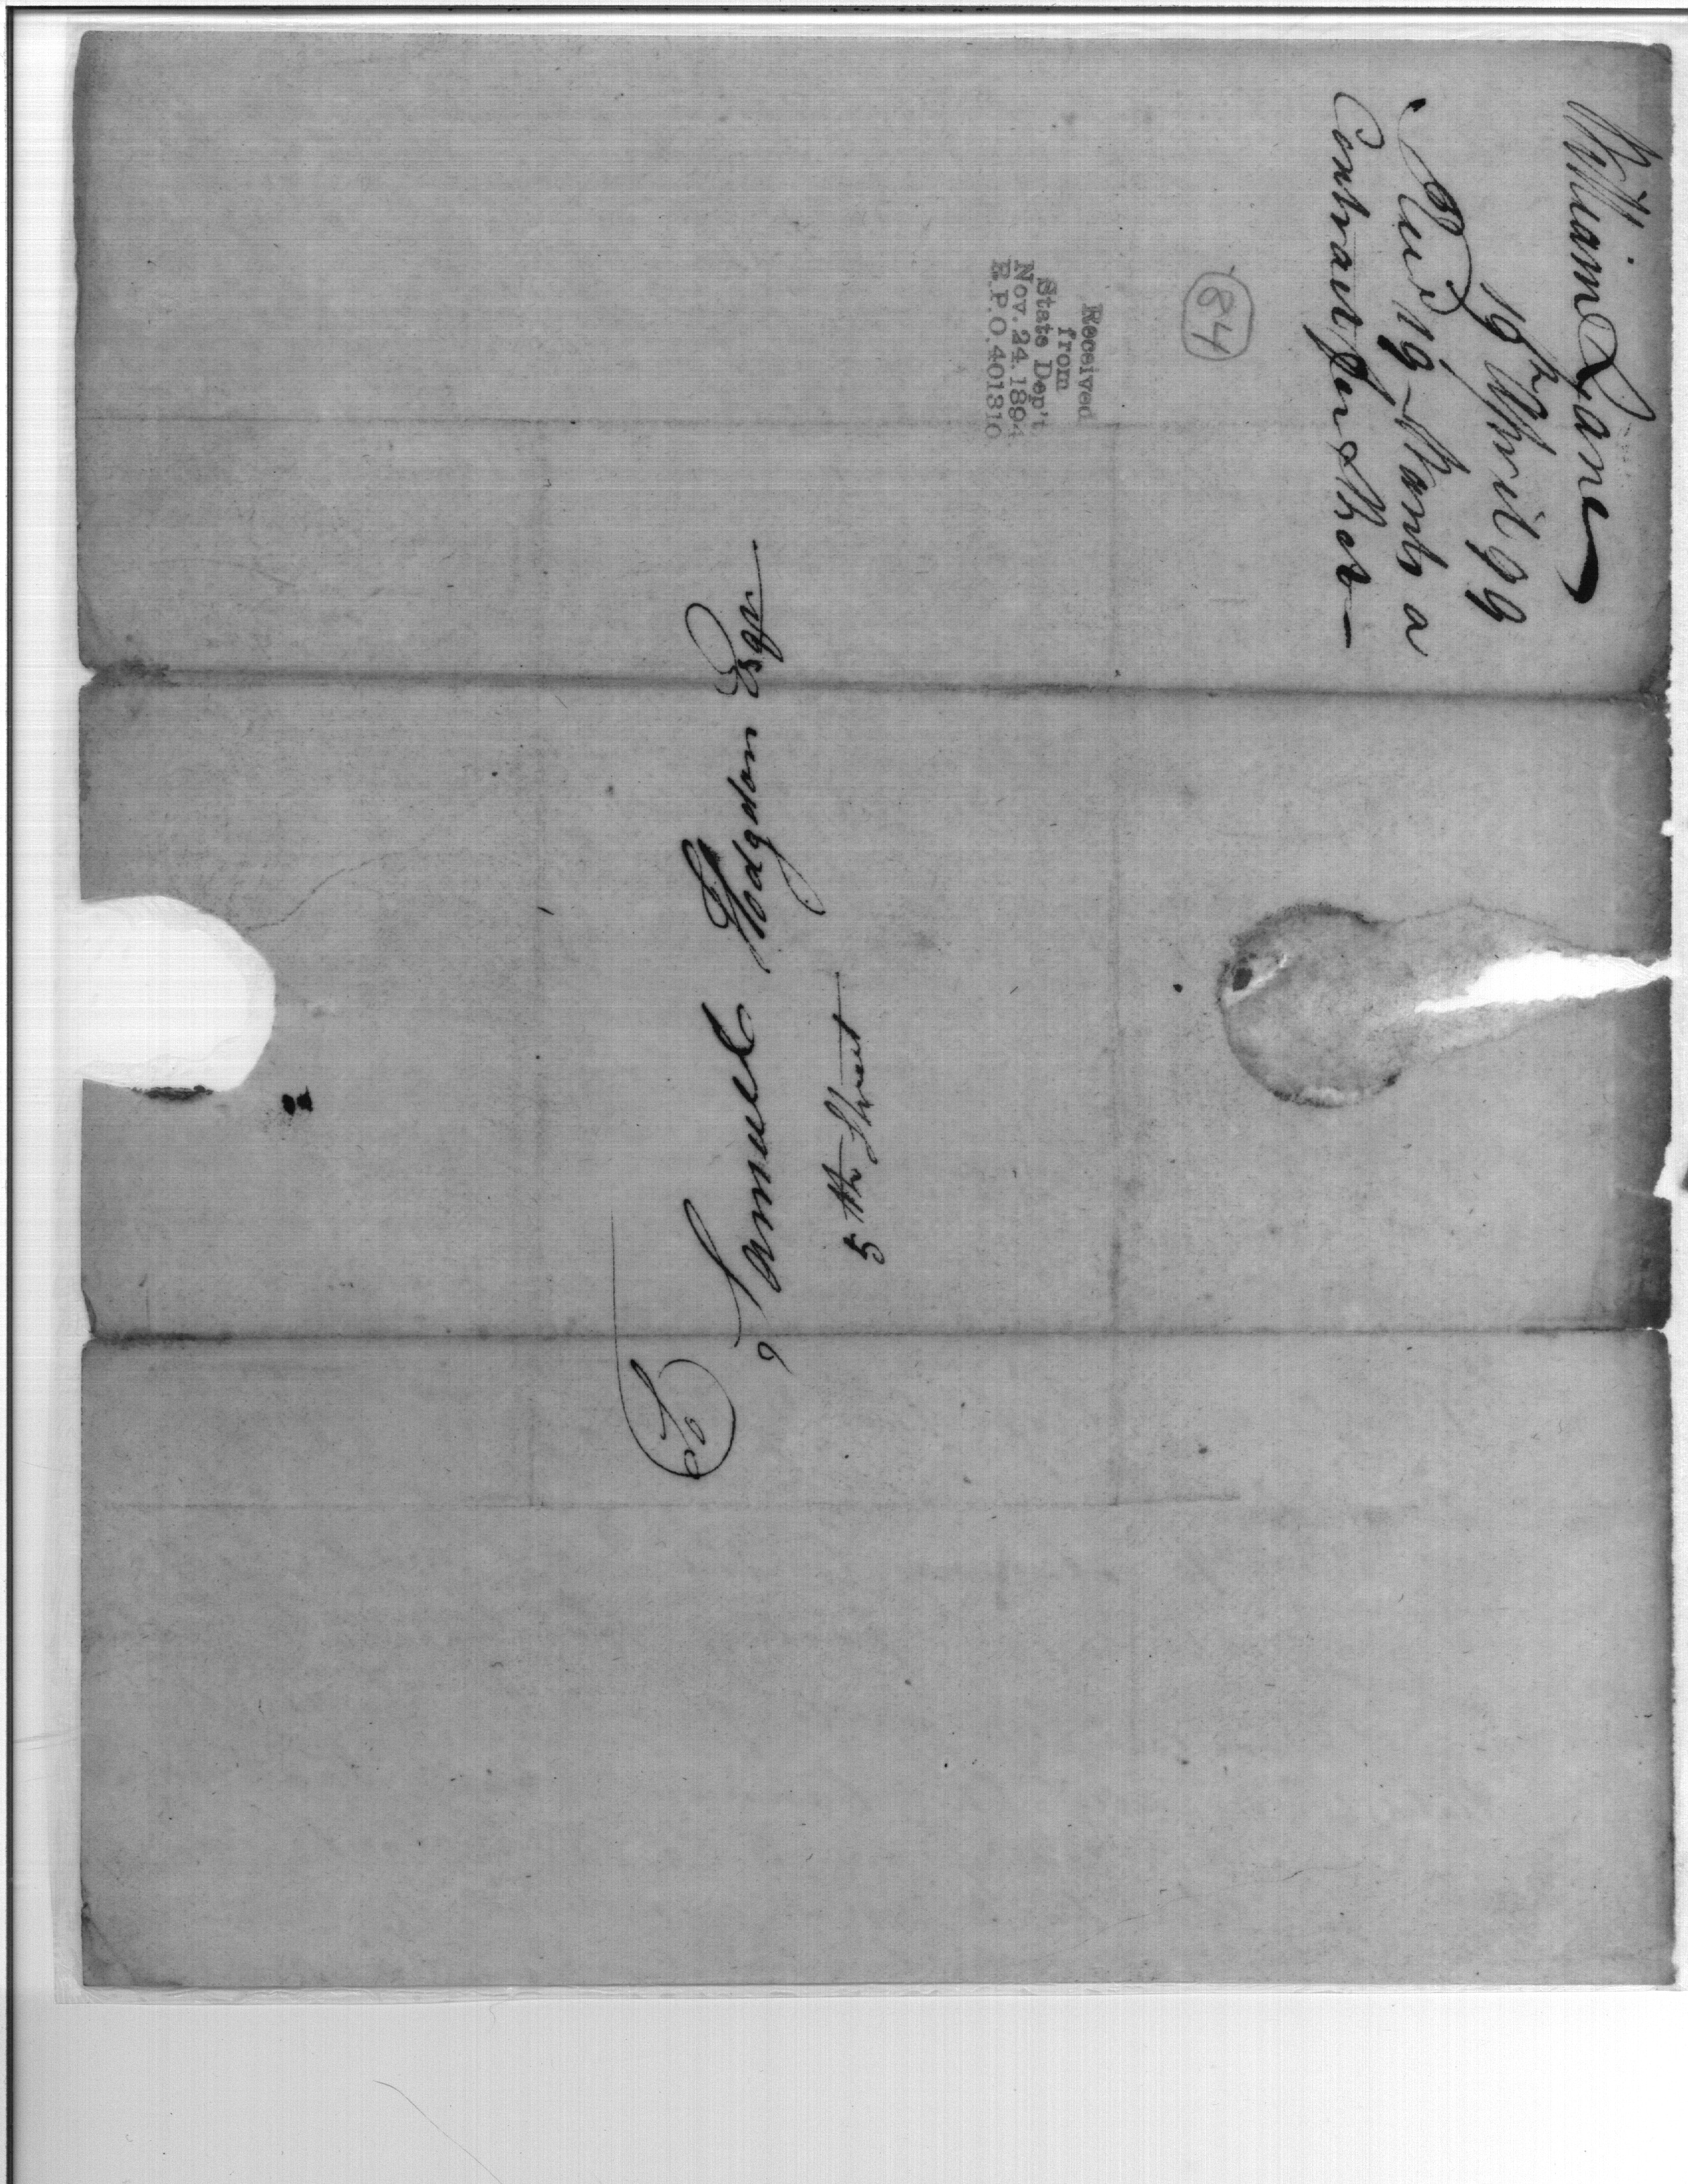 William Lane
19th April 99
Recd 19 - Wants a
Contract for Shoes -
844
Received
from
State Dep't
Nov. 24. 1894
R.P.O. 401310
To
Samuel Hodgdon Esqr
5th Street